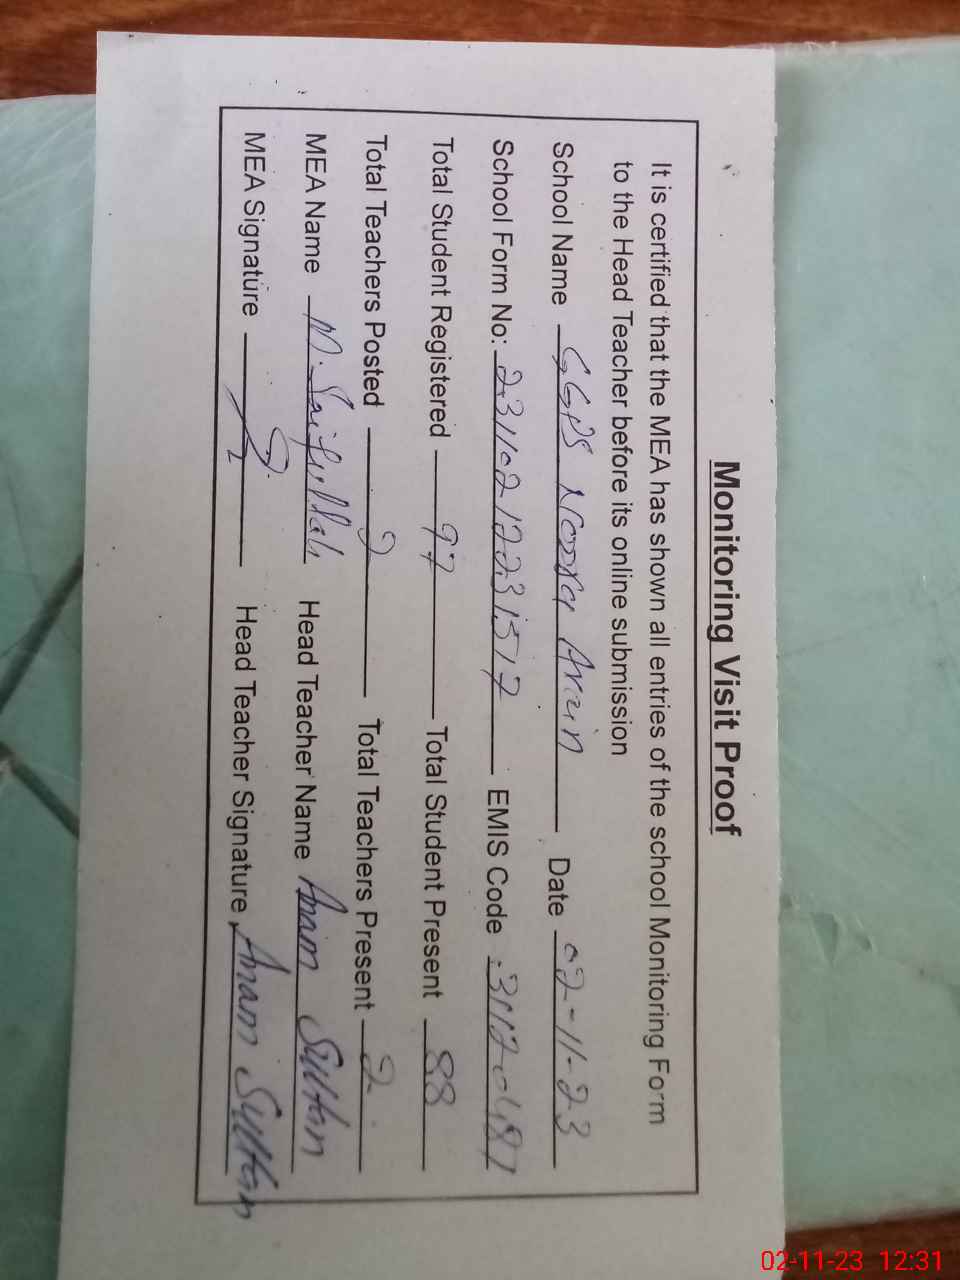 Monitoring Visit Proof
It is certified that the MEA has shown all entries of the school Monitoring Form
to the Head Teacher before its online submission
School Name GGPS Noora Arain Date 02-11-23
School Form No: EMIS Code
Total Student Registered 97 Total Student Present 88
Total Teachers Posted 2 Total Teachers Present 2
MEA Name M. Saifullah Head Teacher Name Anam Sultan
MEA Signature Head Teacher Signature Anam Sultan
02-11-23 12:31